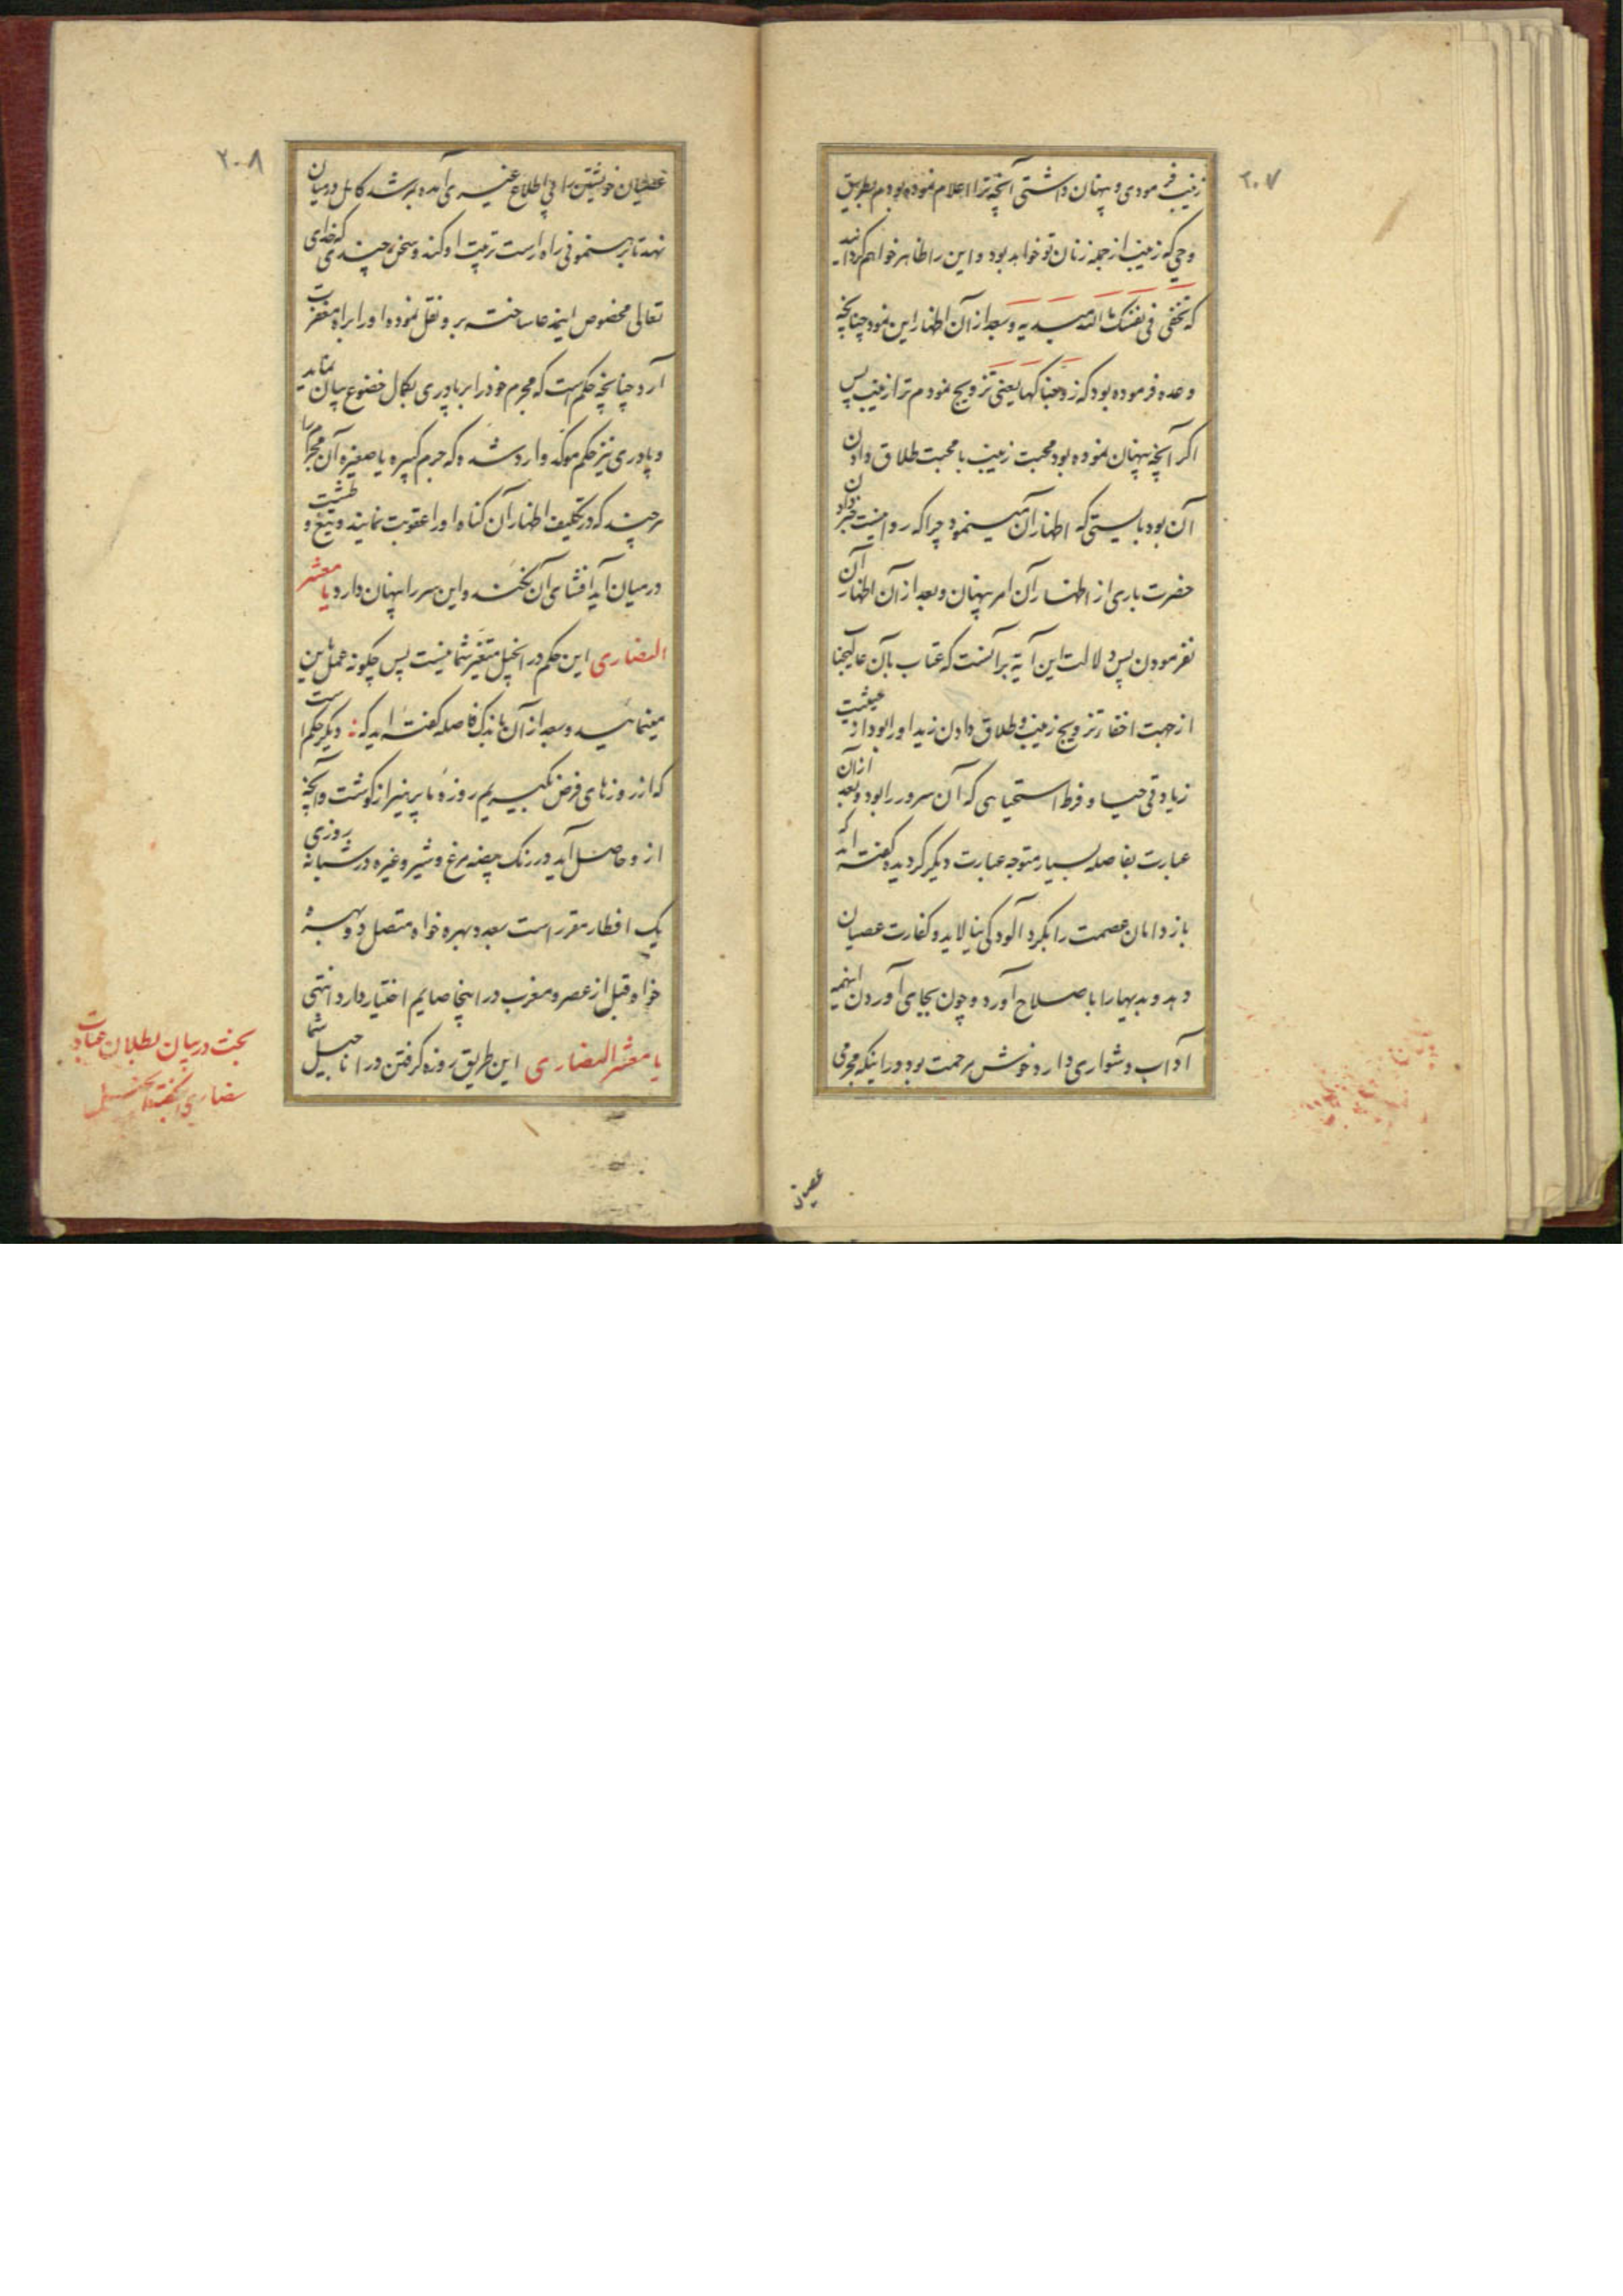 ۲۰۷
زینب فرمودی و پنهان داشتی آنچه ترا اعلام نموده بودم بطریق
وحی که زینب از جمله زنان تو خواهد بود و این را ظاهر خواهم گردانید
که تخفی فی نفسک ما الله مبدیه و بعد از آن اظهار این نمود چنانچه
وعده فرموده بود که زوجناکها یعنی تزویج نمودم ترا زینب پس
اگر آنچه پنهان نموده بود محبت زینب یا محبت طلاق دادن
آن بود بایستی که اظهار آن مینمود چرا که روا نیست خبر دادن
حضرت باری از اظهار آن امر پنهان و بعد از آن اظهار آن
نفرمودن پس دلالت این آیه بر آنست که عتاب بآن عالیجناب
از جهت اخفاء تزویج زینب و طلاق دادن زید او را بود از حیثیت
زیادتی حیا و فرط استحیایی که آن سرور را بود و بعد از آن
عبارت بفاصله بسیار متوجه عبارت دیگر گردیده گفته اند که
باز دامان عصمت را بگرد آلودگی نیالاید و کفارت عصیان
دهد و بدیها را باصلاح آورد و چون بجای آوردن اینهمه
آداب دشواری دارد خوش مرحمت بود در اینکه مجرمی
عصیان
۲۰۸
عصیان خویشتن را بی اطلاع غیری آمده بمرشد کامل در میان
نهد تا برهنمونی راه راست تربیت او کند و سخن چندی که خدای
تعالی مخصوص اینمدعا ساخته برو نقل نموده او را براه مغفرت
آرد چنانچه حکم است که مجرم خود را بر پادری بکمال خضوع بیان نماید
و پادری نیز حکم موکد وارد شده که جرم کبیره یا صغیره آن مجرم را
هرچند که در تکلیف اظهار آن گناه او را عقوبت نمایند و تیغ و طشت
در میان آید افشای آن نکند و این سر را پنهان دارد یا معشر
النصاری این حکم در انجیل متغیر شما نیست پس چگونه عمل باین
مینمائید و بعد از آن باندک فاصله گفته اید که : دیگر حکم است
که از روزهای فرض بگیریم روزه با پرهیز از گوشت و آنچه
ازو حاصل آید در رنگ بیضه مرغ و شیر و غیره در شبانه روزی
یک افطار مقرر است بعد دوبهره خواه متصل دوبهره
خواه قبل از عصر و مغرب در اینجا صایم اختیار دارد انتهی
یا معشر النصاری این طریق روزه گرفتن در اناجیل شما
بحث در بیان بطلان عبادت
نصاری بگفته انجیل